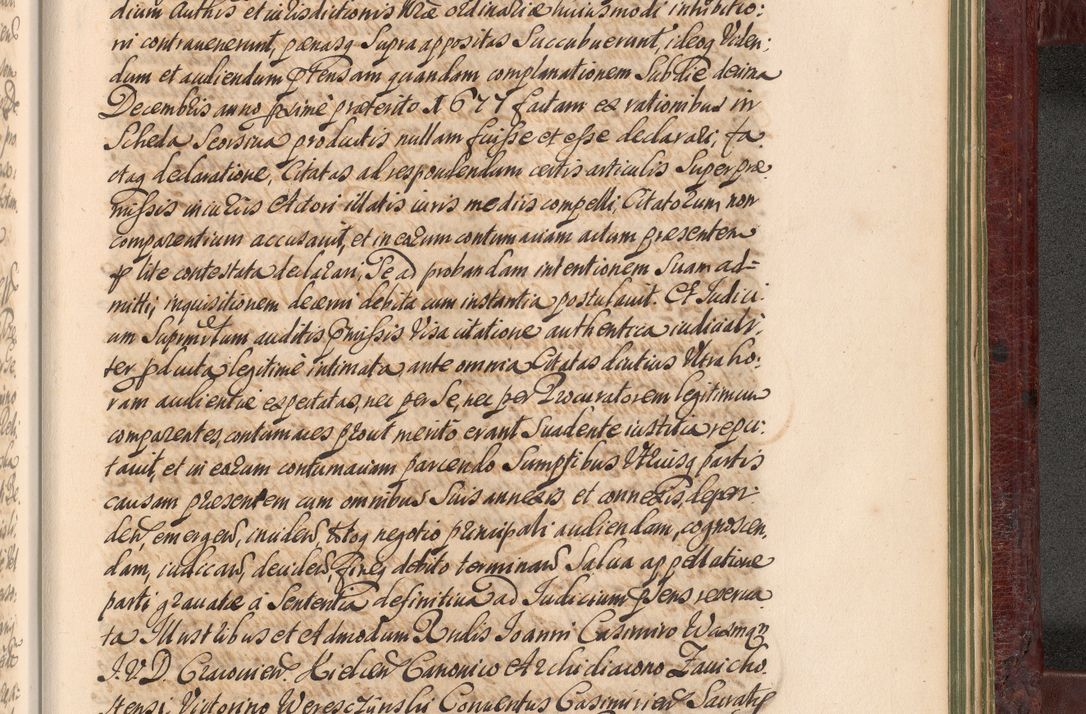 dium Authis et iurisdictionis Nræ ordinariæ huiusmodi inhibitio:
ni contrauenerunt, pœnasq supra appositas succubuerunt, ideoq Viden:
dum et audiendum ptensam quandam complanationem sub Die decima
Decembris anno proxime præterito 1677 factam ex rationibus in
Scheda seorsiua productis nullam fuisse et esse declarari, fa
ctaq declaratione, Citatas ad respondendum certis articulis super præ
missis iniuriis Actori illatis iuris mediis compelli, Citatorum non
comparentium accusauit, et in earum contumaciam actum præsentem
p lite contestata declarari, Se ad probandam intentionem suam ad=
mitti, inquisitionem decerni debita cum instantia postulauit. Et Iudici
um auditis pmissis Visa citatione authentica iudiciali
ter pducta legitime intimata ante omnia Citatas diutius Ultra ho:
ram audientiæ expectatas, nec per se, nec per Procuratorem legitimum
comparentes, contumaces prout merito erant Suadente iustitia repu:
tauit, et in earum contumaciam parcendo Sumptibus Utriusq partis
causam præsentem cum omnibus suis annexis et connexis, depen:
den, emergen, inciden, totoq negotio principali audiendam, cognoscen
dam, iudicand, deciden, fineq debito terminand Salua appellatione
parti grauatæ a Sententia definitiua ad Iudicium psens reserua
ta Illustribus et Admodum Rndis Ioanni Casimiro
I.V.D. Cracouien. Kielcen Canonico Archidiacono Zauicho
stensi, Victorino Wereszczynski Conuentus Casimirien